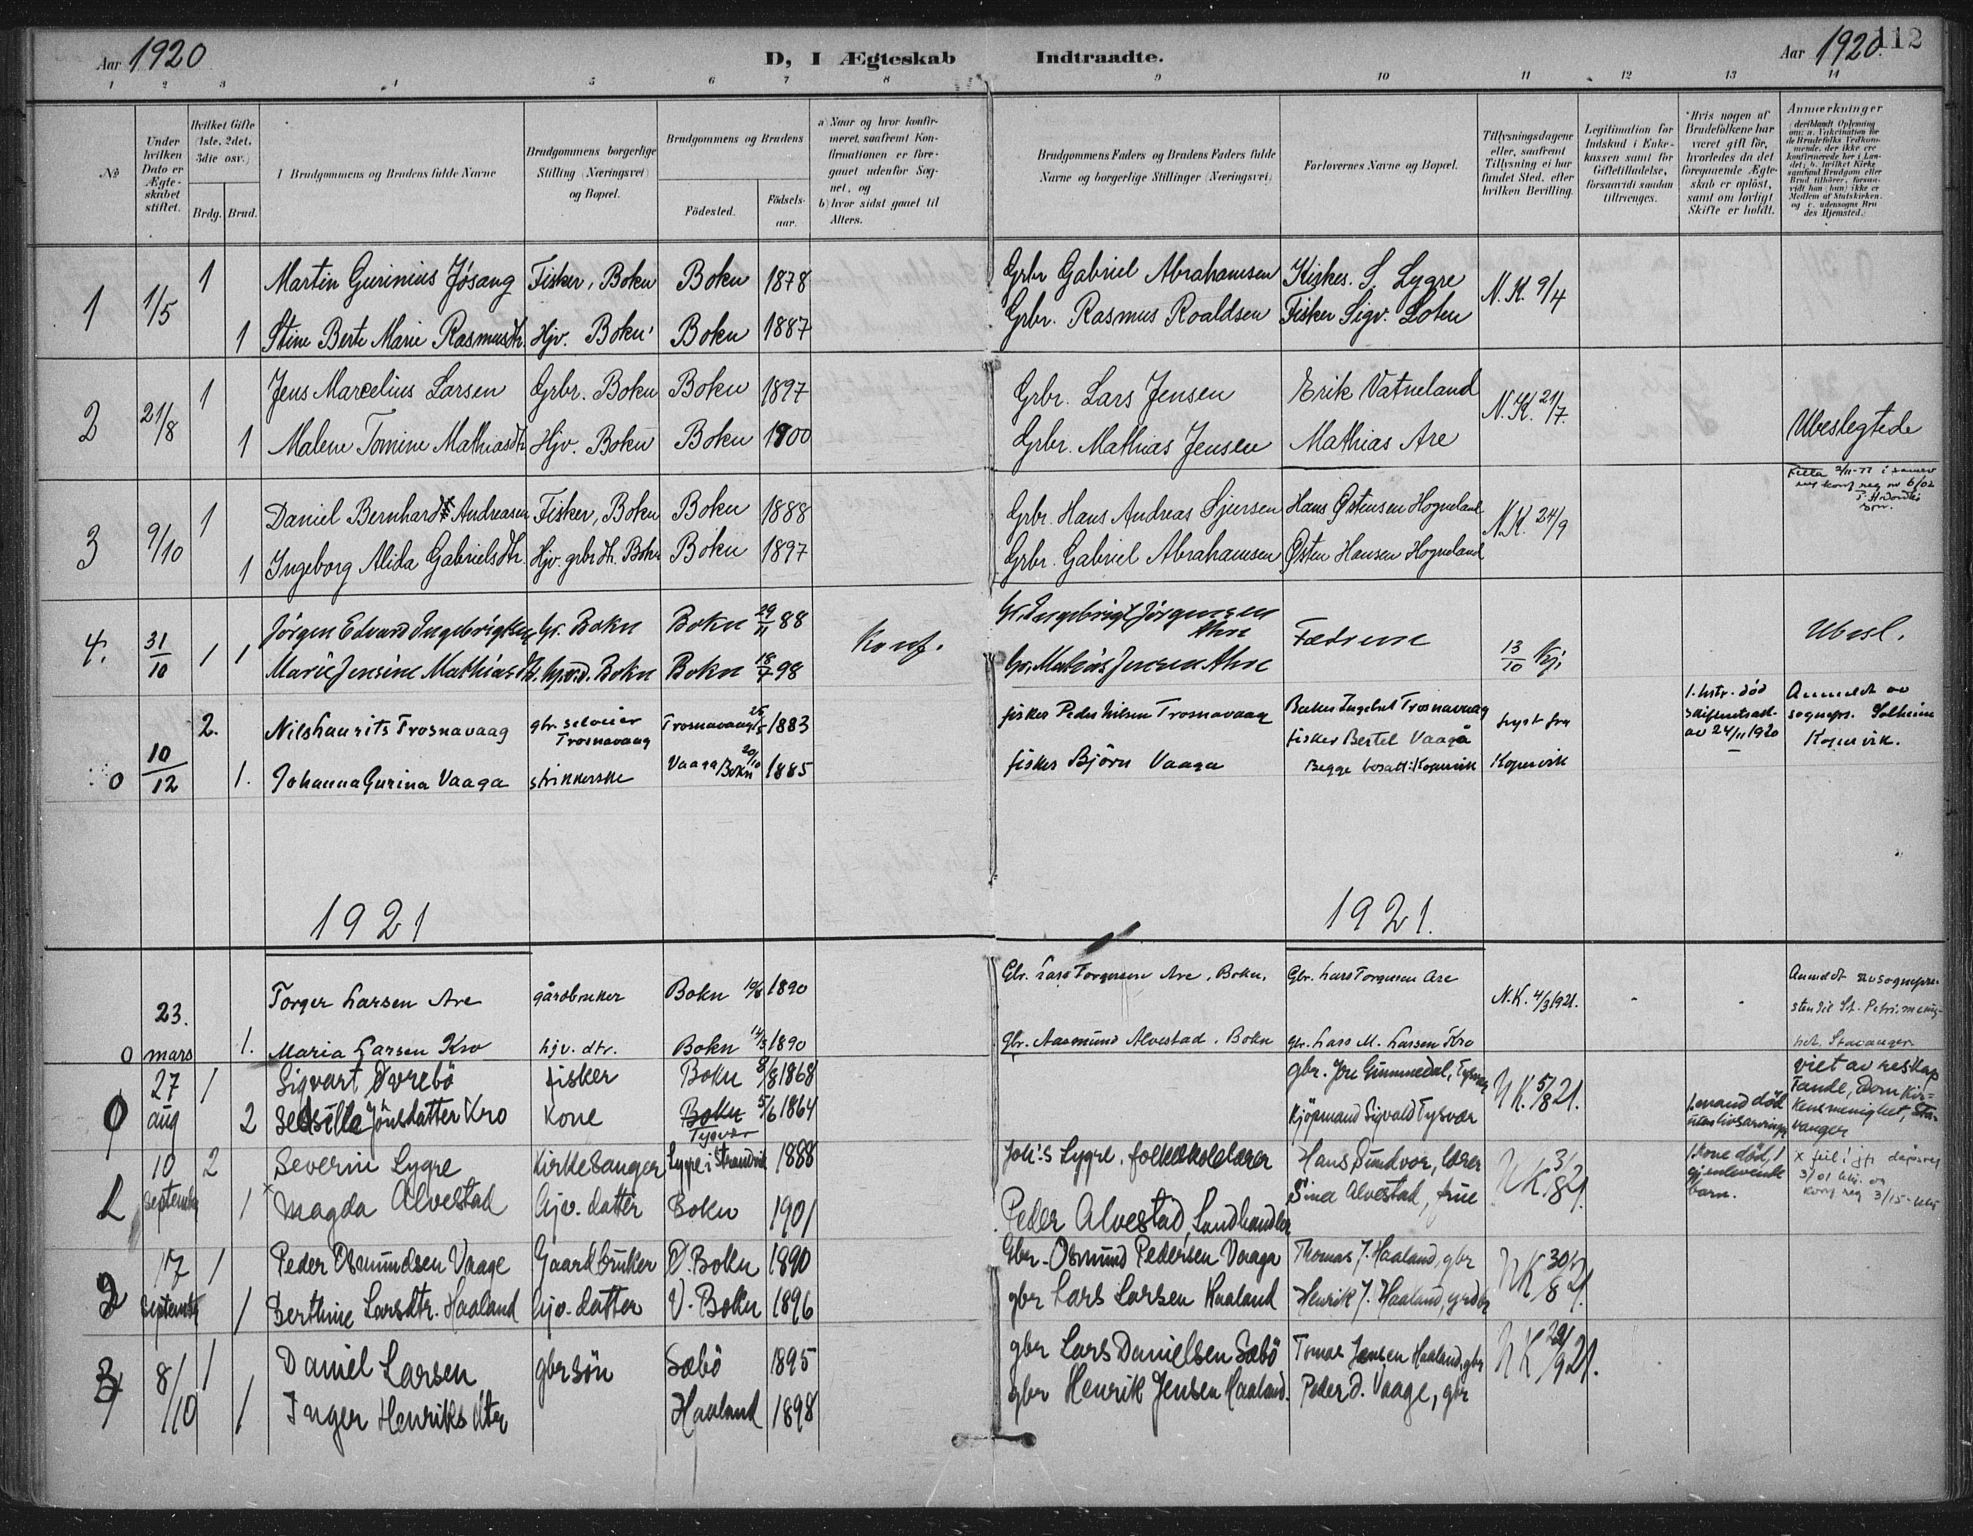 Aar 1920
D, I Ægteskab Indtraadte.
Aar 1920.
112
1 2 3 4 5 6 7 8 9 10 11 12 13 14
№
Under hvilken Dato er Ægteskabet stiftet.
Hvilket Gifte (1ste, 2det, 3die osv.)
Brdg. Brud.
I Brudgommens og Brudens fulde Navne
Brudgommens borgerlige Stilling (Næringsvei) og Bopæl.
Brudgommens og Brudens
Fødested. Fødselsaar.
a) Naar og hvor konfirmeret, saafremt Konfirmationen er foregaaet udenfor Sognet, og
b) hvor sidst gaaet til Alters.
Brudgommens Faders og Brudens Faders fulde Navne og borgerlige Stillinger (Næringsvei)
Forlovernes Navne og Bopæl.
Tillysningsdagene eller, saafremt Tillysning ei har fundet Sted, efter hvilken Bevilling.
Legitimation for Indskud i Enkekassen samt for Giftetilladelse, forsaavidt saadan tiltrænges.
Hvis nogen af Brudefolkene har været gift før, hvorledes da det foregaaende Ægteskab er opløst, samt om lovligt Skifte er holdt.
Anmærkninger
1 1/5 1 Martin Gurinius Jøsang Fisker, Bokn Bokn 1878 Grbr Gabriel Abrahamsen Kirkes. S. Lygre N. K. 9/4
1 Stine Berte Marie Rasmusdtr. Hjv. Bokn Bokn 1887 Grbr. Rasmus Roaldsen Fisker Sigv. Loten
2 21/8 1 Jens Marcelius Larsen Grbr. Bokn Bokn 1897 Grbr. Lars Jensen Erik Vatneland N. K. 21/7.
1 Malene Tomine Mathiasdtr Hjv. Bokn Bokn 1900 Grbr. Mathias Jensen Mathias Are Ubeslegtede
3 9/10 1 Daniel Bernhard Andreasen Fisker, Bokn Bokn 1888 Grbr. Hans Andreas Sjursen Hans Østensen Hogneland N. K. 24/9
1 Ingeborg Alida Gabrielsdtr. Hjv. grbr dtr. Bokn Bokn 1897 Grbr. Gabriel Abrahamsen Østen Hansen Hogneland
4. 31/10 1 1 Jörgen Edvard Ingebrigtsen Gr. Bokn Bokn 29/11 88 Konf. Gr. Ingebrigt Jörgensen Are Fædrene 13/10 Kj. Ubesl.
Marie Jensine Mathiasdtr. Bokn Bokn 18/7 98 Gr. Mathias Jensen Are
0 10/12 2. Nils Laurits Trosnavaag gbr. selveier Trosnavaag Trosnavaag 25/5 1883 fisker Peder Nilsen Trosnavaag Trosnavaag lyst fra
1. hstr. død skifteattest av 24/11 1920
Anmeldt av sognepr. Solheim Kopervik.
1. Johanna Gurina Vaaga strikkerske Vaaga Bokn 20/10 1885 fisker Björn Vaaga fisker Bertel Vaaga Begge bosatt: Kopervik Kopervik
1921 1921.
0 23. mars Torger Larsen Are gårdbruker Bokn 1890 Gbr. Lars Torgersen Are. Bokn. Gbr. Lars Torgersen Are N.K. 4/3 1921. - -
Anmeldt av sognepresten til St. Petri menighet, Stavanger
1. Maria Larsen Kro hjv. dtr. Bokn 14/3 1890 gbr. Aasmund Alvestad. Bokn gbr. Lars M. Larsen Kro
0 27 aug 1 Sigvart Øvrebö fisker Bokn 8/8 1868 gbr. Jone Gimmedal, Tysvær NK. 5/8 21.
viet av reskap Tande, Domkirkens menighet, Stavanger
2 Jonsdatter Kro Kone Bokn Tysvær 5/6 1864 Kjøpmand Sigvald Tysvær 1. mand død uten livsarving
1 10 september 2 Severin Lygre Kirkesanger Lygre i Strandvik 1888 Johs Lygre, folkeskolelærer Hans Sundvor, lærer NK. 3/8 21.
1 kone død, 1 gjenlevende barn.
x feil! jfr dåpsreg 3/01
1 x Magda Alvestad hjv. datter Bokn 1901 Peder Alvestad, Landhandler Sina Alvestad, frue
2 17 september 1 Peder Osmundsen Vaage Gaardbruker V. Bokn 1890 Gbr. Osmund Pedersen Vaaga Thomas J. Haaland, gbr NK 30/8 21.
1 Berthine Larsdtr. Haaland hjv. datter V. Bokn 1896 gbr Lars Larsen Haaland Henrik J. Haaland, grdbr
3 8/10 1 Daniel Larsen gbr søn Sæbö 1895 gbr Lars Danielsen Sæbö Tomas Jensen Haaland, gbr NK 22/9 21.
1 Inger Henriksdtr Haaland 1898 gbr Henrik Jensen Haaland. Peder O. Vaage, gbr